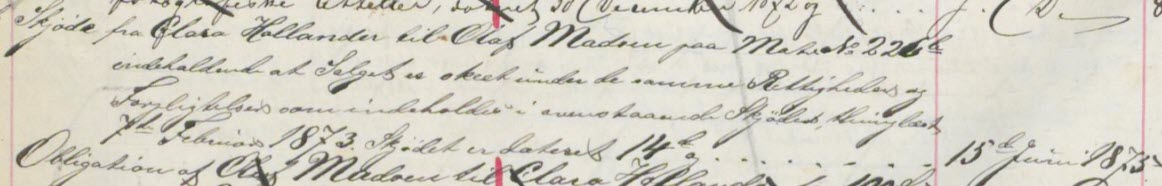 fotografiske Atelier, dateret 30 December 1872 og
Skjøde fra Clara Hollander til Olaf Madsen paa Matr No 226b
indeholdende at Salget er skeet under de samme Rettigheder og
Forpligtelser som indeholdes i ovenstaaende Skjøder, thinglæst
7de Februar 1873. Skjødet er dateret 14de og . . . . . . . . 15de Juni 1875
Obligation af Olaf Madsen til Clara Hollander